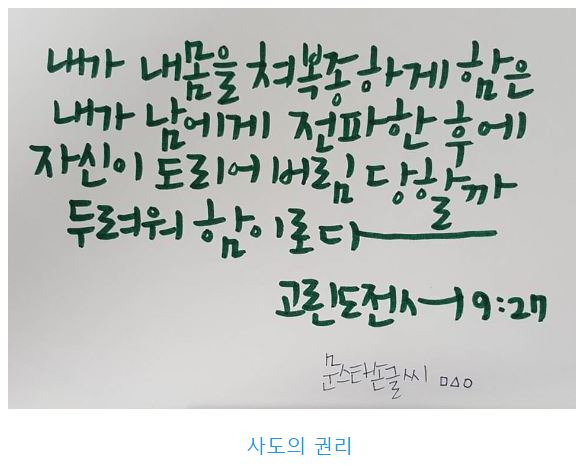 내가 내몸을 쳐복종하게 함은
내가 남에게 전파한 후에
자신이 도리어 버림 당할까
두려워 함이로다
고린도전서 9:27
문스타손글씨 ㅁㅿㅇ
사도의 권리